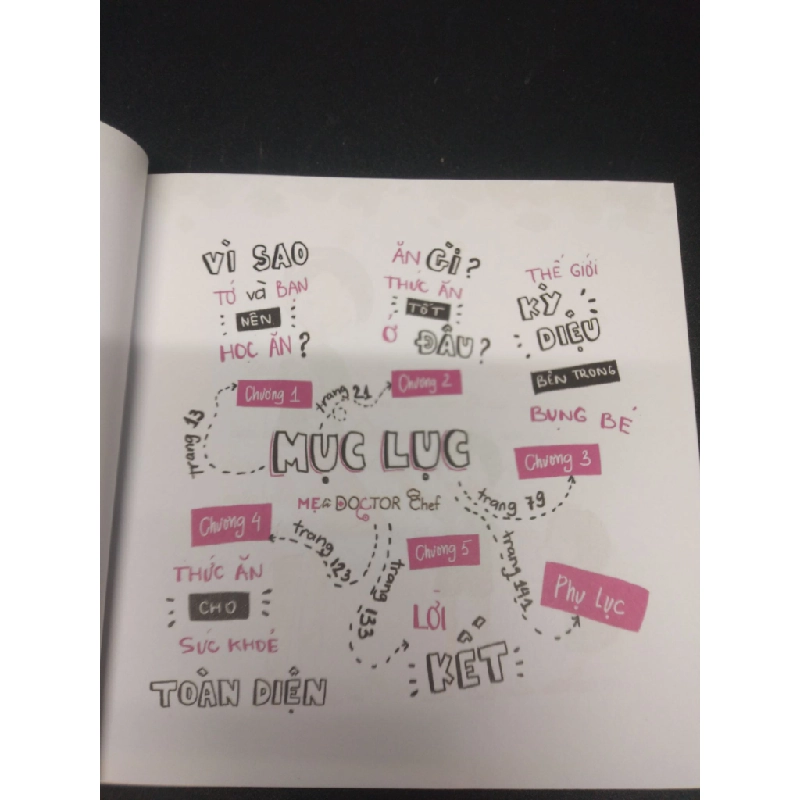 VÌ SAO
TỚ và BẠN
NÊN
HỌC ĂN?
Chương 1
trang 13
ĂN GÌ?
THỨC ĂN
TỐT
Ở ĐÂU?
Chương 2
trang 21
THẾ GIỚI
KỲ DIỆU
BÊN TRONG
BỤNG BÉ
Chương 3
trang 79
MỤC LỤC
DOCTOR Chef
Chương 4
trang 123
THỨC ĂN
CHO
SỨC KHOẺ
TOÀN DIỆN
Chương 5
trang 133
LỜI
KẾT
trang 141
PHỤ LỤC